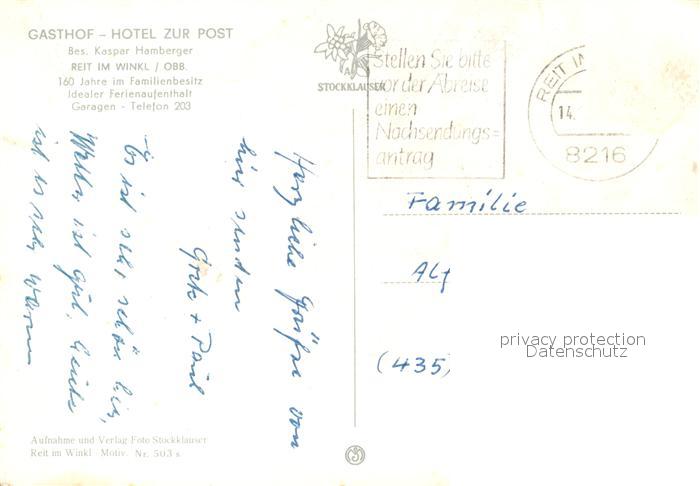 GASTHOF – HOTEL ZUR POST
Bes. Kaspar Hamberger
REIT IM WINKL / OBB.
160 Jahre im Familienbesitz
Idealer Ferienaufenthalt
Garagen - Telefon 203
STOCKKLAUSER
Stellen Sie bitte
vor der Abreise
einen
Nachsendungs=
antrag
REIT IM
14.
8216
Herzliche Grüße von
hier senden
Grete + Paul
Es ist sehr schön hier,
Wetter ist gut, heute
ist es sehr warm
Familie
(435)
privacy protection
Datenschutz
Aufnahme und Verlag Foto Stockklauser
Reit im Winkl - Motiv. Nr. 503 s